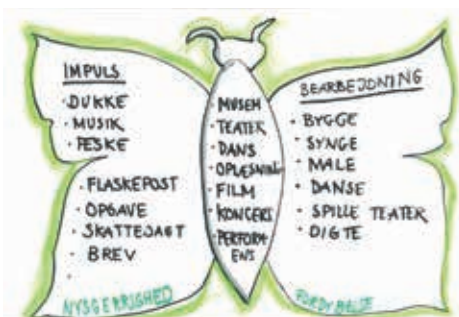 IMPULS
· DUKKE
· MUSIK
· ÆSKE
· FLASKEPOST
· OPGAVE
· SKATTEJAGT
· BREV
·
NYSGERRIGHED
· MUSEM
· TEATER
· DANS
· OPLÆSNING
· FILM
· KONCERT
· PERFORM-
ENS
BEARBEJDNING
· BYGGE
· SYNGE
· MALE
· DANSE
· SPILLE TEATER
· DIGTE
FORDYBELSE